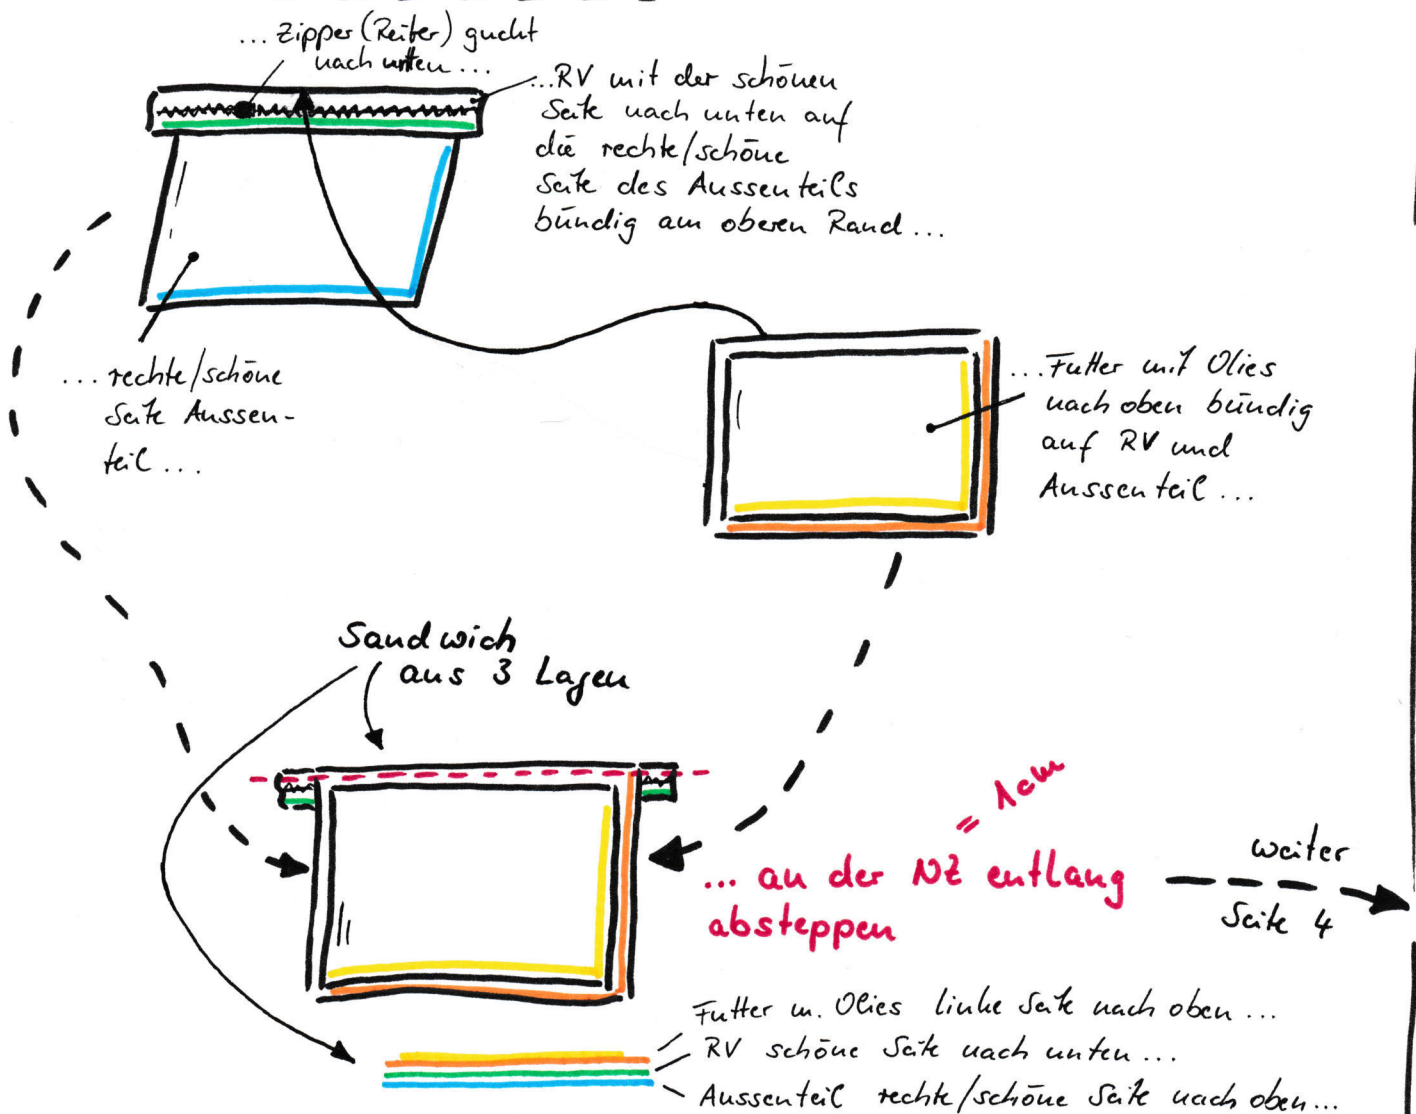 ... Zipper (Reiter) guckt
nach unten ...
... RV mit der schönen
Seite nach unten auf
die rechte/schöne
Seite des Aussenteils
bündig am oberen Rand ...
... rechte/schöne
Seite Aussen-
teil ...
... Futter mit Vlies
nach oben bündig
auf RV und
Aussenteil ...
Sandwich
aus 3 Lagen
= 1cm
... an der NZ entlang
absteppen
weiter
Seite 4
Futter m. Vlies linke Seite nach oben ...
RV schöne Seite nach unten ...
Aussenteil rechte/schöne Seite nach oben ...